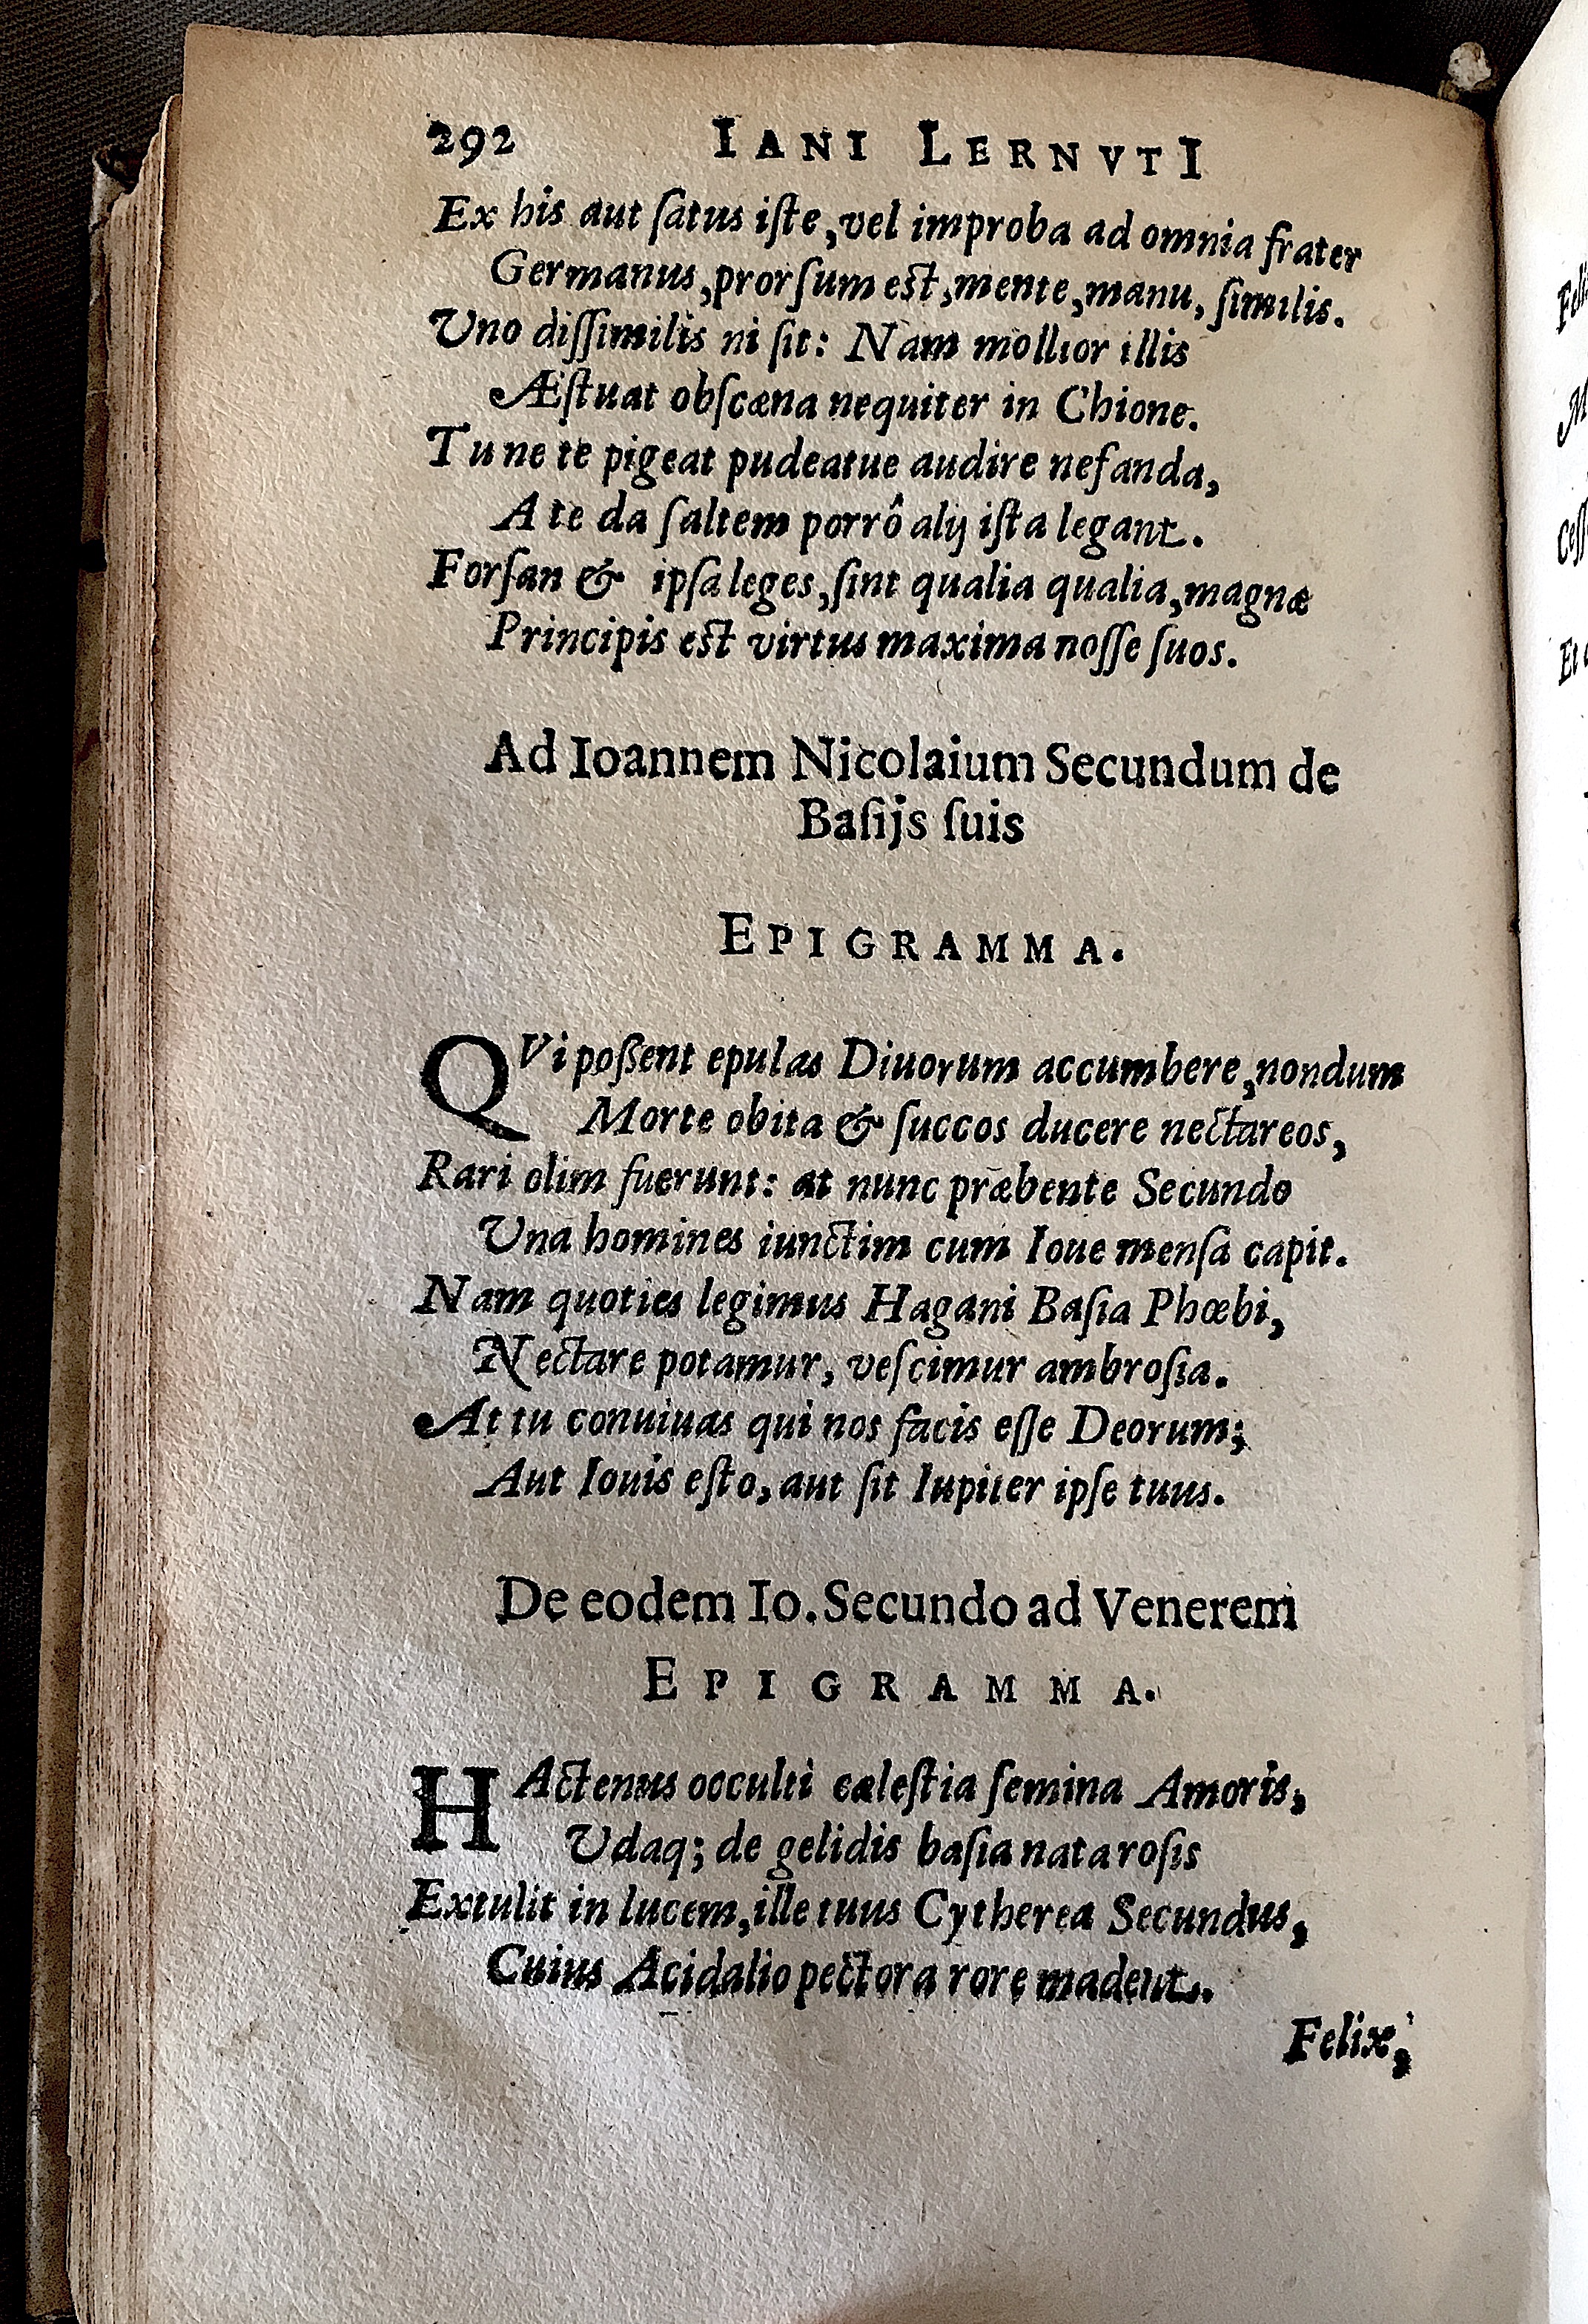 292 IANI LERNVTI
Ex his aut ſatus iſte, vel improba ad omnia frater
Germanus, prorſum est, mente, manu, ſimilis.
Uno diſſimilis ni ſit: Nam mollior illis
Æſtuat obſcæna nequiter in Chione.
Tu ne te pigeat pudeatue audire nefanda,
A te da ſaltem porrô alij iſta legant.
Forſan & ipſa leges, ſint qualia qualia, magnæ
Principis est virtus maxima noſſe ſuos.
Ad Ioannem Nicolaium Secundum de
Baſijs ſuis
EPIGRAMMA.
QVi poßent epulas Diuorum accumbere, nondum
Morte obita & ſuccos ducere nectareos,
Rari olim fuerunt: at nunc præbente Secundo
Una homines iunctim cum Ioue menſa capit.
Nam quoties legimus Hagani Baſia Phœbi,
Nectare potamur, veſcimur ambroſia.
At tu conuiuas qui nos facis eſſe Deorum;
Aut Iouis eſto, aut ſit Iupiter ipſe tuus.
De eodem Io. Secundo ad Venerem
EPIGRAMMA.
HActenus occulti cæleſtia ſemina Amoris,
Udaq; de gelidis baſia nata roſis
Extulit in lucem, ille tuus Cytherea Secundus,
Cuius Acidalio pectora rore madent.
Felix,